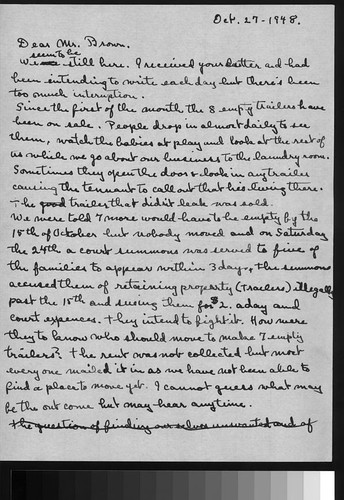 Oct. 27-1948.
Dear Mr. Brown.
seem to be
We are still here. I received your letter and had
been intending to write each day but there's been
too much interuption.
Since the first of the month the 8 empty trailers have
been on sale. People drop in almost daily to see
them, watch the babies at play and look at the rest of
us while we go about our business to the laundry room.
Sometimes they open the doors & look in any trailer
causing the tennant to call out that he's living there.
The good trailer that didn't leak was sold.
We were told 7 more would have to be empty by the
15th of October but nobody moved and on Saturday
the 24th a court summons was served to five of
the families to appear within 3 days, the summons
accused them of retaining property (trailers) illegally
past the 15th and sueing them for $2. a day and
court expences. They intend to fight it. How were
they to know who should move to make 7 empty
trailers? The rent was not collected but most
every one mailed it in as we have not been able to
find a place to move yet. I cannot guess what may
be the out come but may hear anytime.
The question of finding ourselves unwanted and of